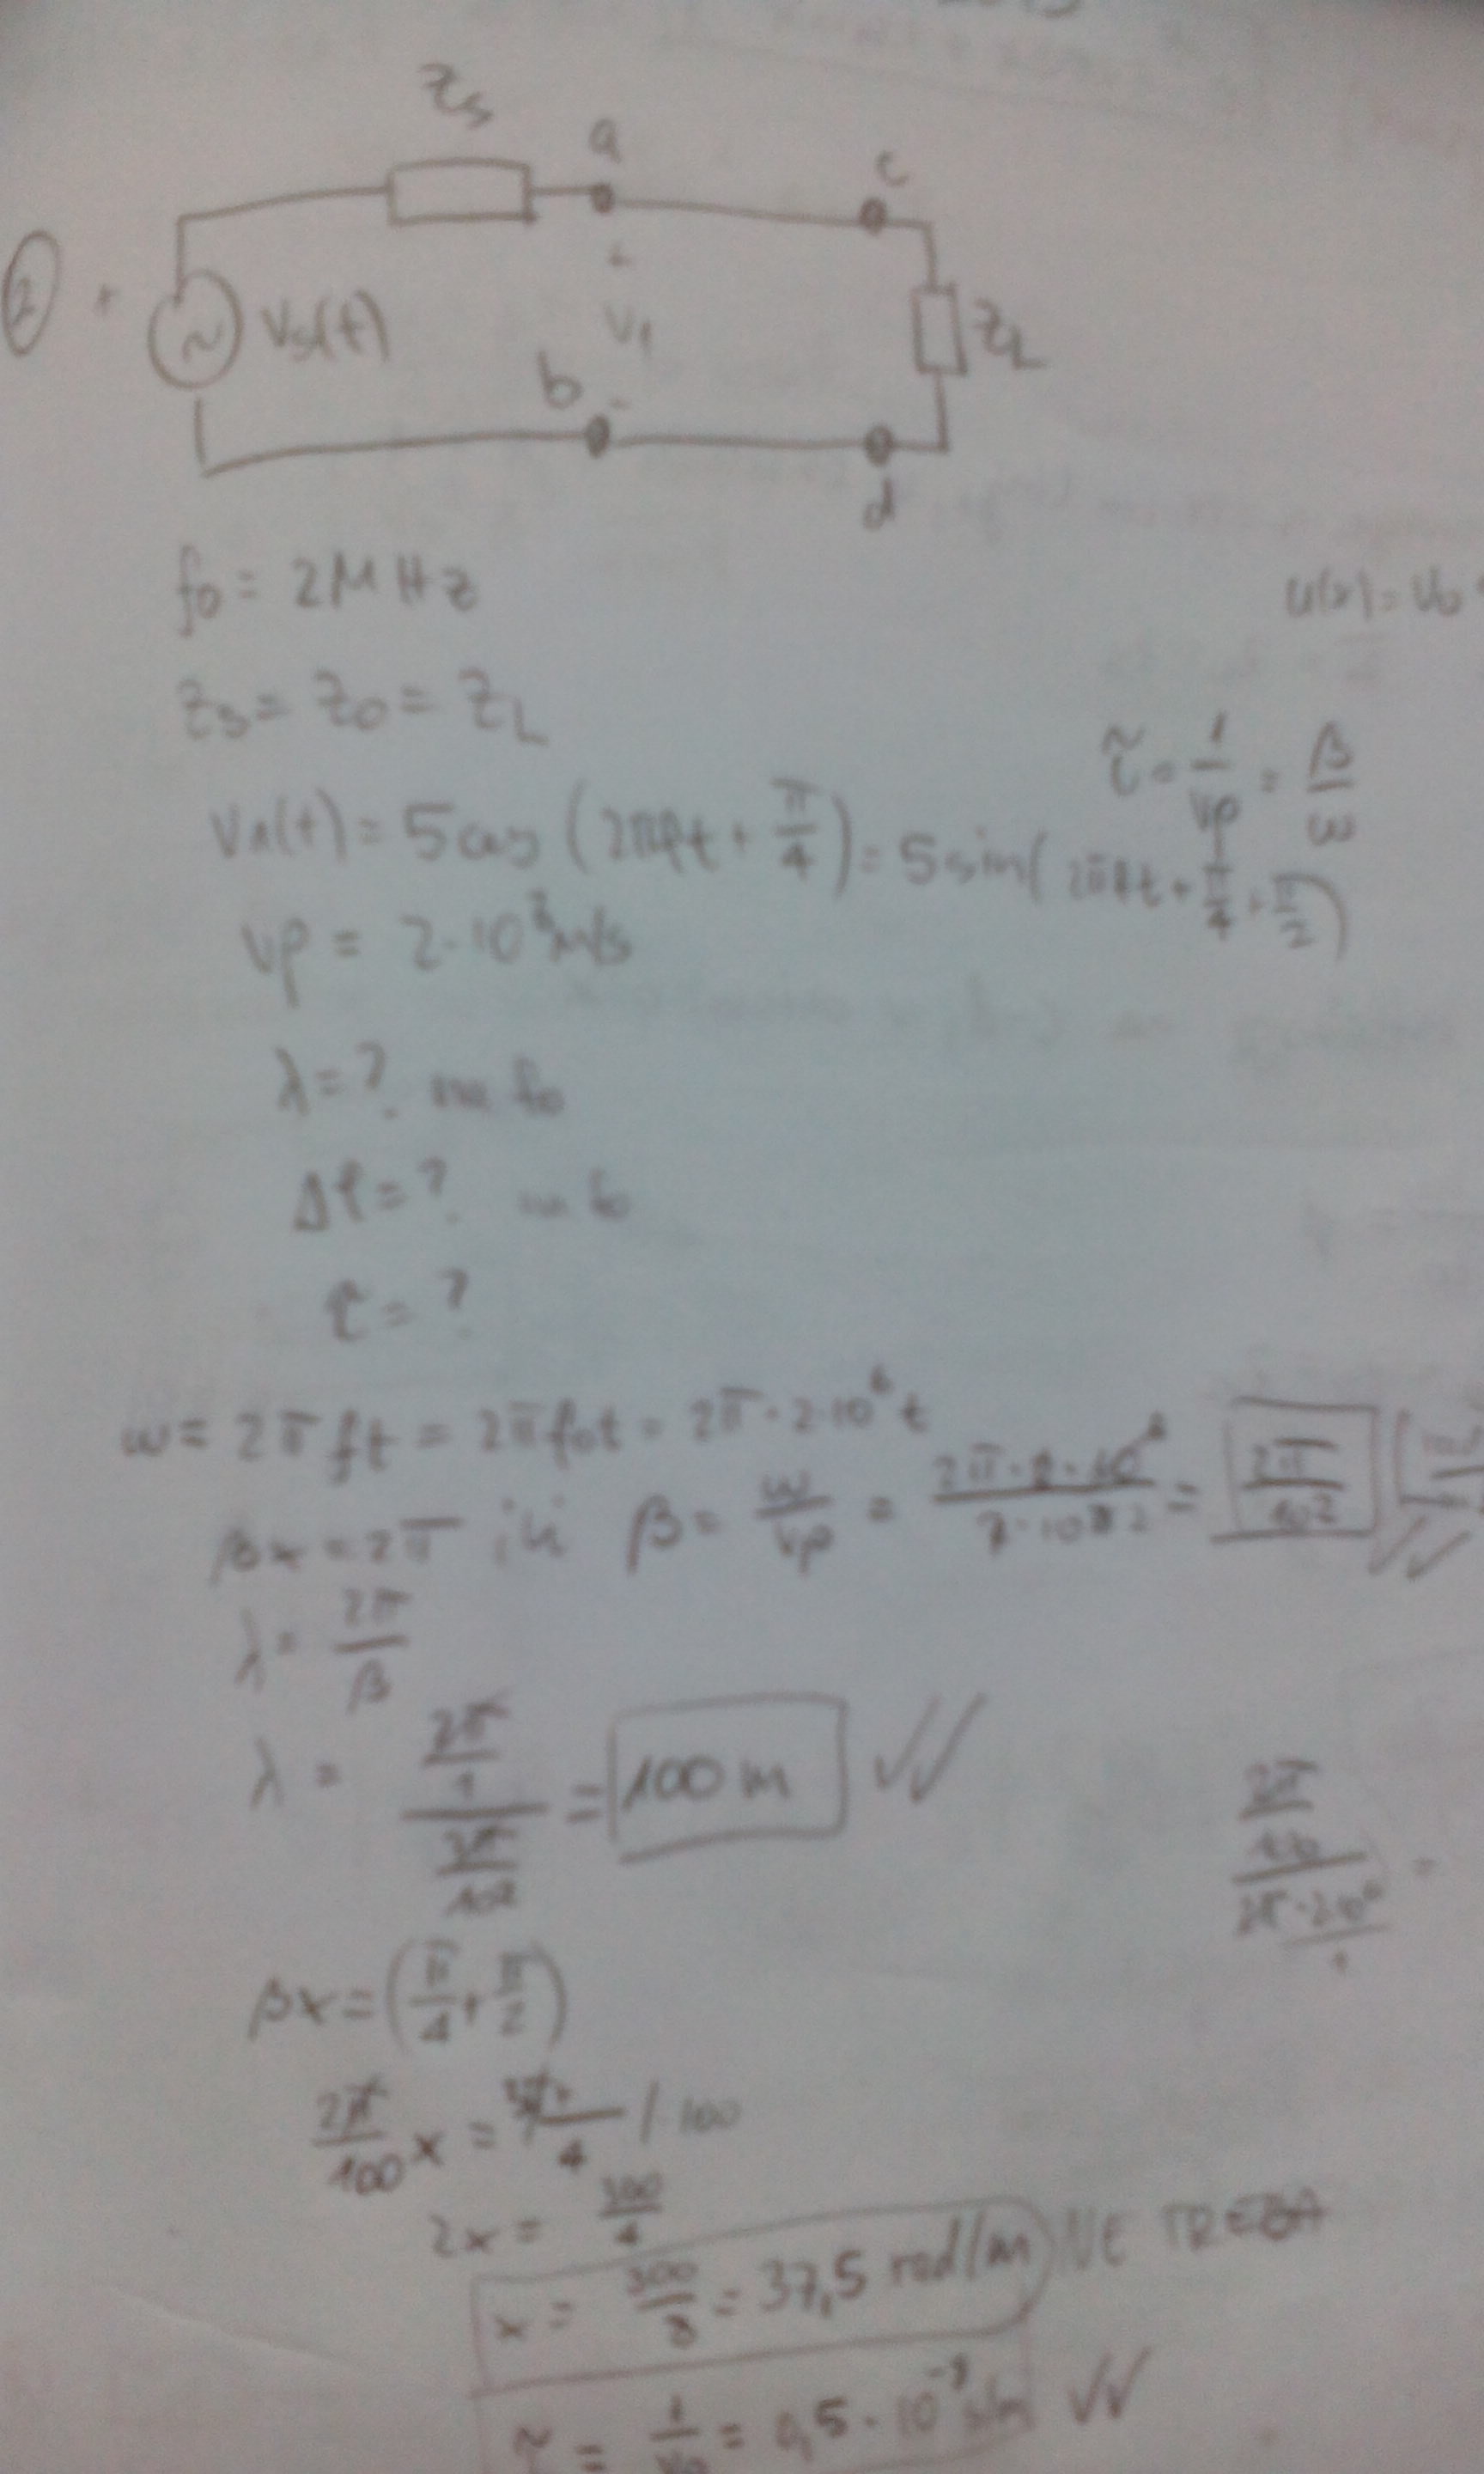 Zs
a
c
②
+
Vs(t)
+
V1
-
ZL
b
d
f0 = 2MHz
u(x) = U0
Zs = Z0 = ZL
τ = 1/vp = β/ω
V1(t) = 5cos(2πft + π/4) = 5sin(2πft + π/4 + π/2)
vp = 2·10^8 m/s
λ = ? na f0
Δt = ? na f0
τ = ?
ω = 2πft = 2πf0t = 2π·2·10^6 t
βx = 2π ili β = ω/vp = 2π·2·10^6 / 2·10^8 2 = 2π/10^2
λ = 2π/β
λ = (2π/1) / (2π/10^2) = 100 m
(2π/100) / (2π·2·10^6/1) =
βx = (π/4 + π/2)
2π/100 x = 3π/4 /·100
2x = 300/4
x = 300/8 = 37,5 rad/m NE TREBA
τ = 1/vp = 0,5·10^-8 s/m